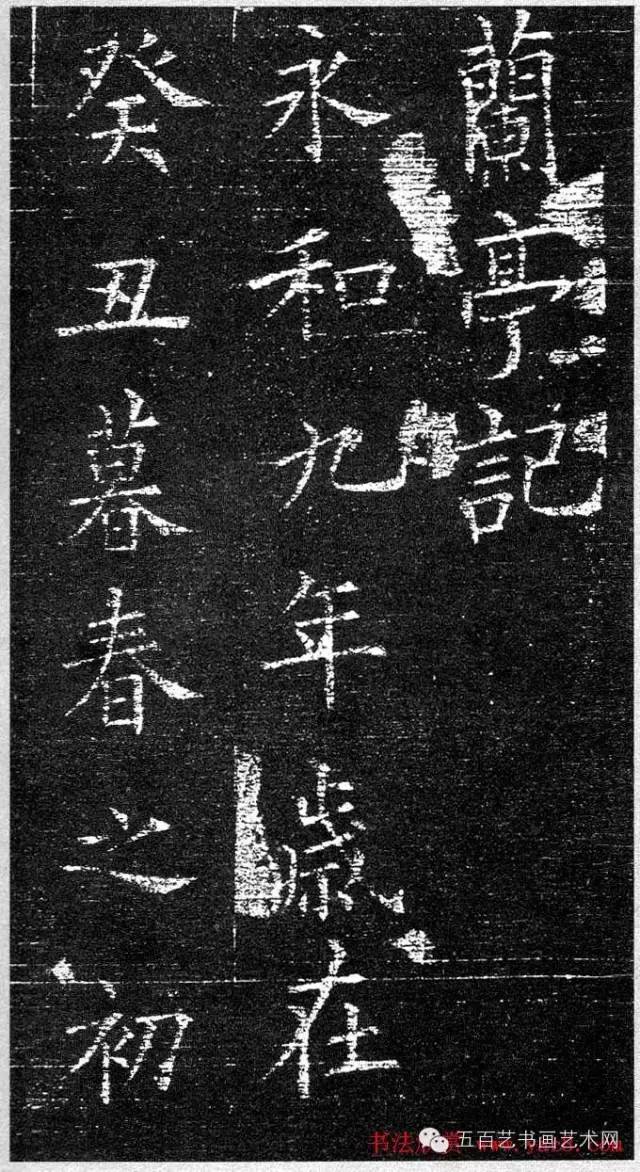 蘭亭記
永和九年歲在
癸丑暮春之初
書法欣赏
五百艺书画艺术网